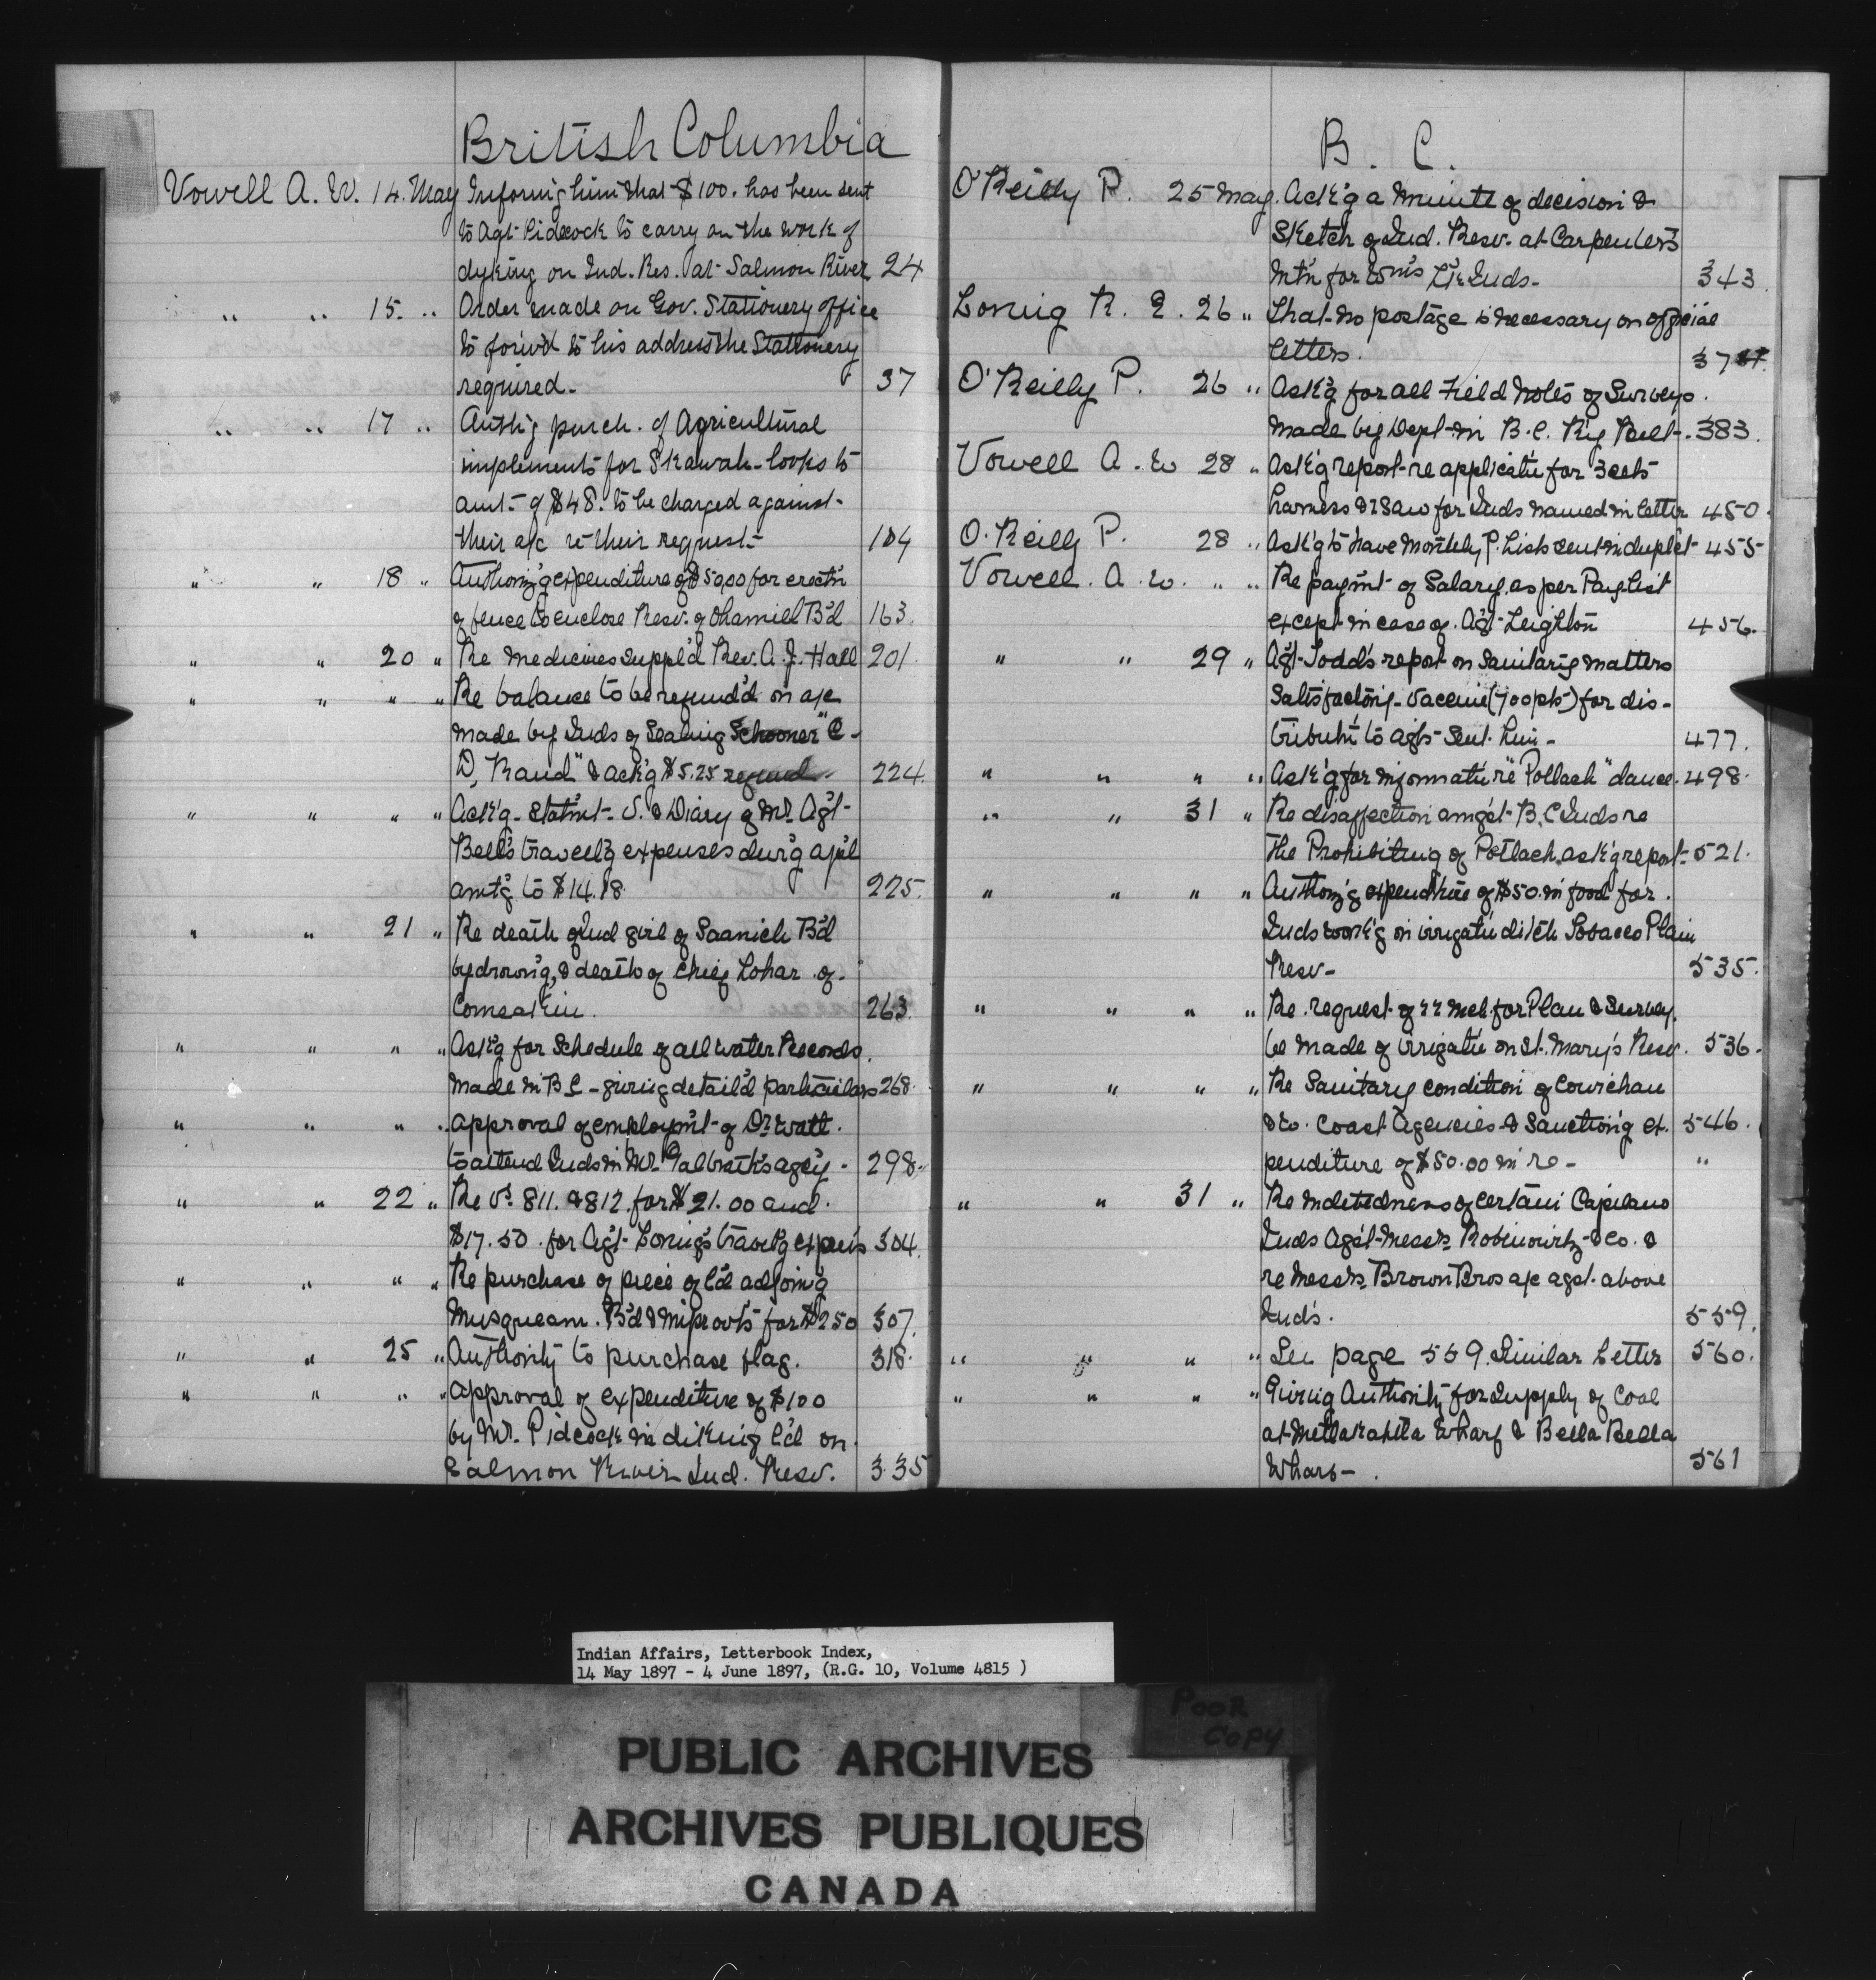 British Columbia
Vowell A. W. 14. May Informing him that $100. has been sent
to Agt Pidcock to carry on the work of
dyking on Ind. Res. at Salmon River 24
" " 15. " Order made on Gov. Stationery office
to forw'd to his address the Stationery
required. 37
" " 17 " Auth'g purch. of Agricultural
implements for Skawah-looks to
amt of $48. to be charged against
their a/c re their request 104
" " 18 " Authoriz'g expenditure of $50.00 for erect'n
of fence to enclose Resv. of Ohamiel B'd 163.
" " 20 " Re Medicines suppl'd Rev. A. J. Hall 201.
" " " " Re balance to be refund'd on a/c
made by Inds of Sealing Schooner "C-
D, Rand" & ack'g $5.25 refund 224.
" " " " Ack'g Statm't S. & Diary of Mr. Ag't
Bell's travell'g expenses dur'g ap'l
amt'g to $14.18. 225.
" " 21 " Re death of Ind girl of Saanich B'd
by drown'g, & death of Chief Lohar of
Comeakin. 263.
" " " " Ask'g for Schedule of all water Records
made in B C - giving detail'd particulars 268.
" " " " approval of employm't of Dr. Watt.
to attend Inds in Mr. Galbraith's ag'cy - 298.
" " 22 " Re Vs. 811. & 812. for $21.00 and
$17.50. for Ag't Loring's travel'g expen's 304.
" " " " Re purchase of piece of l'd adjoin'g
Musqueam. B'd & improv'ts for $250 307.
" " 25 " Authority to purchase flag. 318.
" " " " approval of expenditure of $100
by Mr. Pidcock in diking l'd on
Salmon River Ind. Resv. 335
B. C.
O'Reilly P. 25 May. Ack'g a Minute of decision &
Sketch of Ind. Resv. at Carpenter's
Mt'n for Wm's L'k Inds. 343
Loring R. E. 26 " That no postage is necessary on official
letters.
O'Reilly P. 26 " Ask'g for all Field Notes of Surveys.
made by Dept in B.C. R'y Belt. 383.
Vowell A. W 28 " Ask'g report re applicat'n for 3 sets
harness & 1 saw for Inds named in letter 450.
O'Reilly P. 28 " Ask'g to have monthly P. Lists sent in duplc't 455
Vowell. A. W. " " Re paym't of Salary as per Pay List
except in case of Ag't Leighton 456.
" " 29 " Ag't Todd's report on Sanitary matters
Satisfactory - Vaccine (700 pts) for dis-
tribut'n to ag'ts Sent him - 477.
" " " " Ask'g for informat'n re "Potlach" dance. 498.
" " 31 " Re disaffection am'gst B. C Inds re
the Prohibiting of Potlach, ask'g report - 521.
" " " " Authoriz'g expenditure of $50. in food for.
Inds work'g on irrigat'n ditch Tobacco Plain
Resv - 535.
" " " " Re. request of for Plan & Survey.
be made of irrigat'n on St. Mary's Resv. 536.
" " " " Re Sanitary condition of Cowichan
& W. Coast Agencies & Sanction'g ex- 546.
penditure of $50.00 in re - "
" " 31 " Re Indebtedness of certain Capilano
Inds Ag'st Mess'rs Robinowitz & Co. &
re Mess'rs. Brown Bros a/c agst. above
Inds. 559.
" " " " See page 559. Similar Letter 560.
" " " " Giving Authority for Supply of Coal
at Metlakahtla Wharf & Bella Bella
Wharf - 561
Indian Affairs, Letterbook Index,
14 May 1897 - 4 June 1897, (R.G. 10, Volume 4815 )
POOR
COPY
PUBLIC ARCHIVES
ARCHIVES PUBLIQUES
CANADA